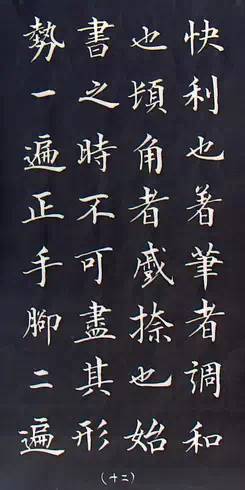 快利也著筆者調和
也頃角者㦸捺也始
書之時不可盡其形
勢一遍正手腳二遍
（十二）